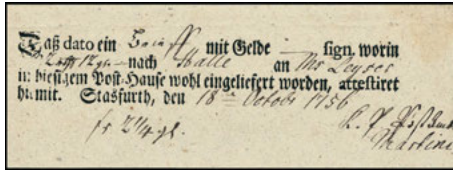 Daß dato ein Brieff mit Gelde sign. worin
nach Halle an Mr Leyser
in hiesigem Post-Hause wohl eingeliefert worden, attestiret
hiemit. Stasfurth, den 18 Octobr 1756
fr 2 1/4 gl.
K. P. Post
Martini